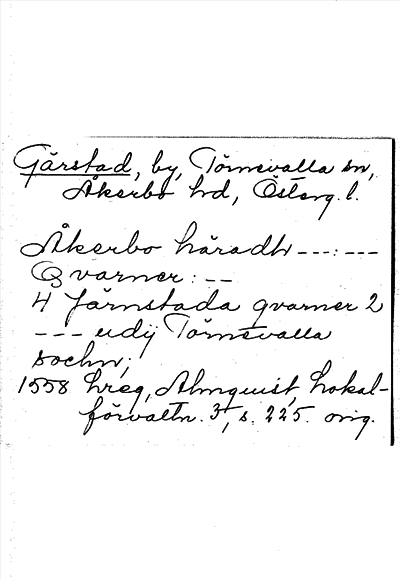 Gärstad, by, Törnevalla sn,
Åkerbo hd, Österg. l.
Åkerbo häradh ---:---
Qvarner: --
4 Järnstada qvarner 2
--- udij Törnevalla
sochn;
1558 hreg, Almquist, Lokal-
förvaltn. 3, s. 225. orig.